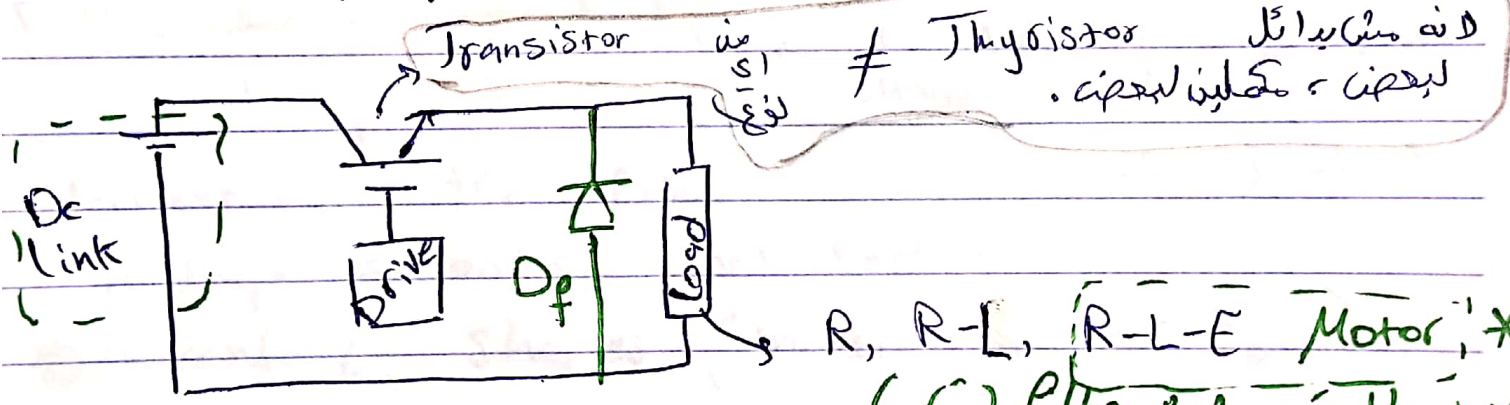 Transistor من ≠ Thyristor لانه مش بدائل
اى
نوع
لبعض، مكملين لبعض.
Dc
link
Drive
Df
Load
R, R-L, R-L-E Motor,